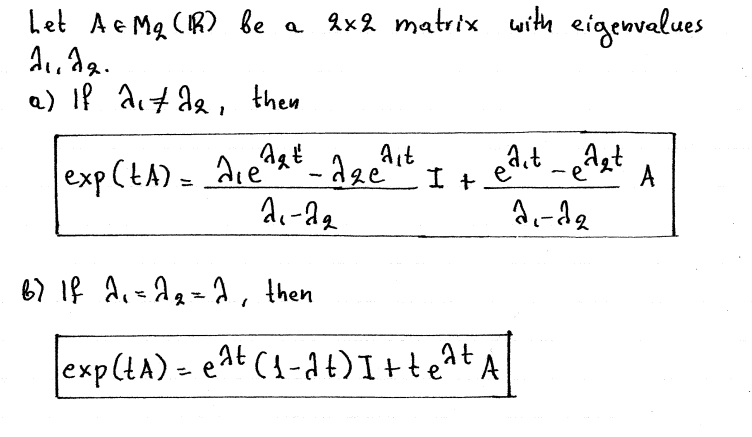 Let A ∈ M₂(ℝ) be a 2x2 matrix with eigenvalues
λ₁, λ₂.
a) If λ₁ ≠ λ₂, then
exp(tA) = (λ₁e^{λ₂t} - λ₂e^{λ₁t})/(λ₁-λ₂) I + (e^{λ₁t} - e^{λ₂t})/(λ₁-λ₂) A
b) If λ₁ = λ₂ = λ, then
exp(tA) = e^{λt}(1-λt)I + te^{λt}A